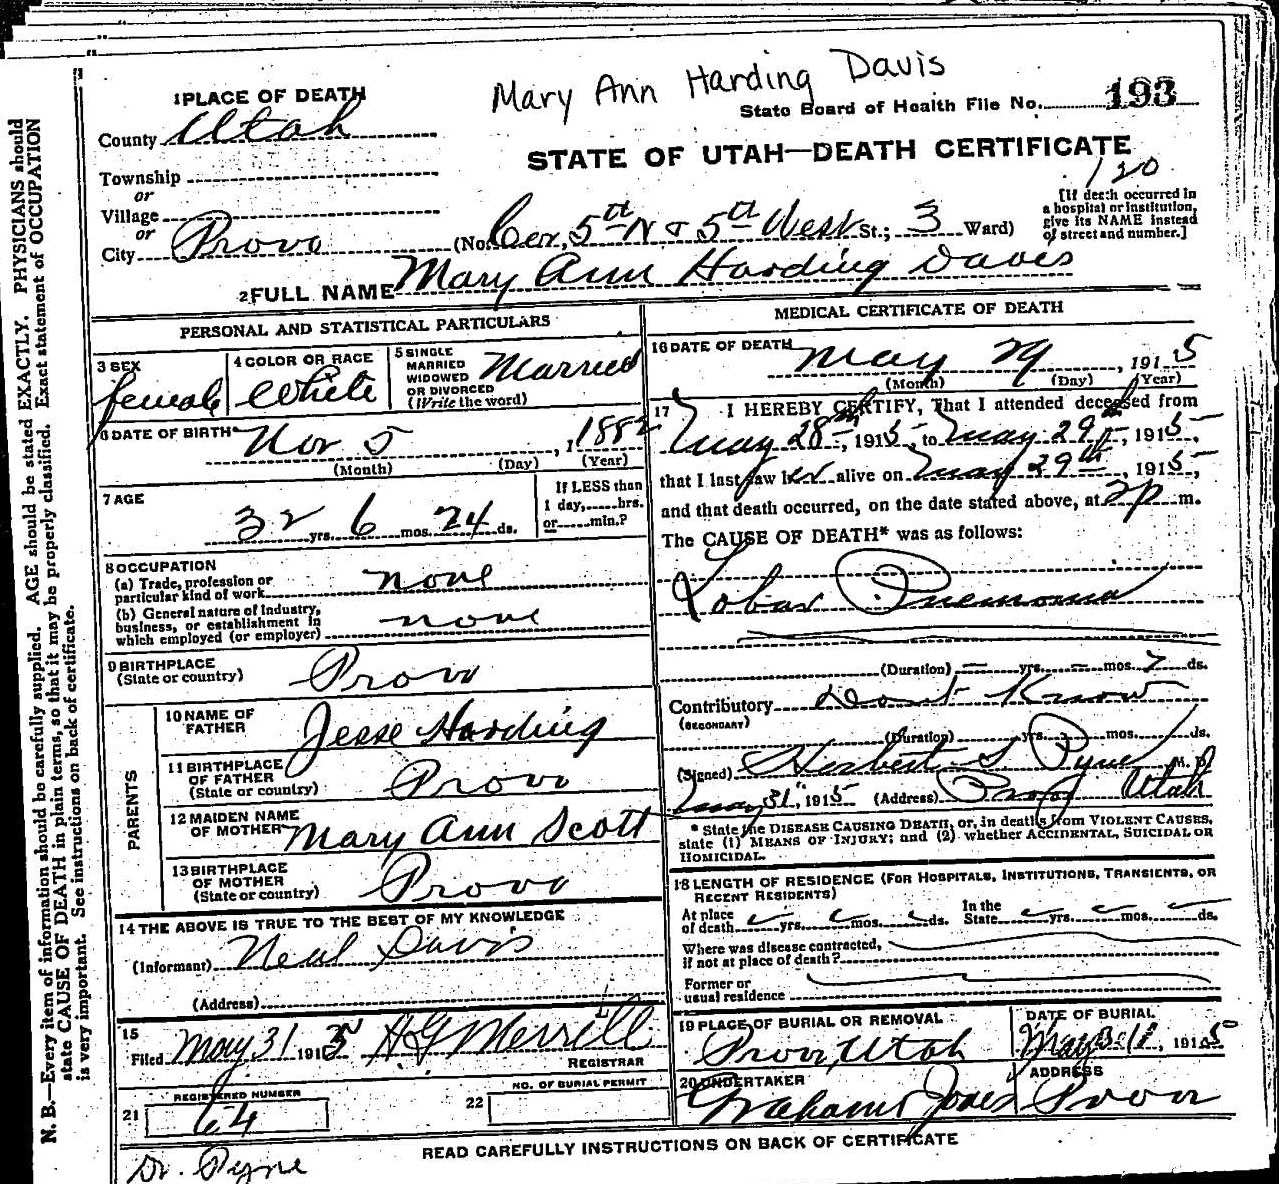 Mary Ann Harding Davis
1 PLACE OF DEATH
State Board of Health File No. 193
County Utah
STATE OF UTAH—DEATH CERTIFICATE
120
Township
or
Village
or
City Provo
(No. Cor, 5th N & 5th West St.; 3 Ward)
[If death occurred in
a hospital or institution,
give its NAME instead
of street and number.]
2 FULL NAME Mary Ann Harding Davis
PERSONAL AND STATISTICAL PARTICULARS
3 SEX
female
4 COLOR OR RACE
White
5 SINGLE
MARRIED
WIDOWED
OR DIVORCED
(Write the word)
Married
6 DATE OF BIRTH
Nov 5, 1882
(Month) (Day) (Year)
7 AGE
32 yrs. 6 mos. 24 ds.
If LESS than
1 day,......hrs.
or......min.?
8 OCCUPATION
(a) Trade, profession or
particular kind of work none
(b) General nature of Industry,
business, or establishment in
which employed (or employer) none
9 BIRTHPLACE
(State or country) Provo
PARENTS
10 NAME OF
FATHER Jesse Harding
11 BIRTHPLACE
OF FATHER
(State or country) Provo
12 MAIDEN NAME
OF MOTHER Mary Ann Scott
13 BIRTHPLACE
OF MOTHER
(State or country) Provo
14 THE ABOVE IS TRUE TO THE BEST OF MY KNOWLEDGE
(Informant) Neal Davis
(Address)
15
Filed May 31 1915 H G Merrill
REGISTRAR
21 REGISTERED NUMBER
64
22 NO. OF BURIAL PERMIT
MEDICAL CERTIFICATE OF DEATH
16 DATE OF DEATH
May 29, 1915
(Month) (Day) (Year)
17 I HEREBY CERTIFY, That I attended deceased from
May 28th, 1915, to May 29th, 1915,
that I last saw her alive on May 29th, 1915,
and that death occurred, on the date stated above, at 2p m.
The CAUSE OF DEATH* was as follows:
Lobar Pnemonia
(Duration) – yrs. – mos. 7 ds.
Contributory Dont Know
(SECONDARY)
(Duration) yrs. mos. ds.
(Signed) Herbert S Pyne M. D
May 31, 1915 (Address) Provo Utah
* State the DISEASE CAUSING DEATH, or, in deaths from VIOLENT CAUSES,
state (1) MEANS OF INJURY; and (2) whether ACCIDENTAL, SUICIDAL OR
HOMICIDAL.
18 LENGTH OF RESIDENCE (FOR HOSPITALS, INSTITUTIONS, TRANSIENTS, OR
RECENT RESIDENTS)
At place
of death yrs. mos. ds.
In the
State yrs. mos. ds.
Where was disease contracted,
if not at place of death?
Former or
usual residence
19 PLACE OF BURIAL OR REMOVAL
Provo, Utah
DATE OF BURIAL
May 31, 1915
20 UNDERTAKER
Graham Jones
ADDRESS
Provo
READ CAREFULLY INSTRUCTIONS ON BACK OF CERTIFICATE
Dr. Pyne
N. B.—Every item of information should be carefully supplied. AGE should be stated EXACTLY. PHYSICIANS should
state CAUSE OF DEATH in plain terms, so that it may be properly classified. Exact statement of OCCUPATION
is very important. See instructions on back of certificate.